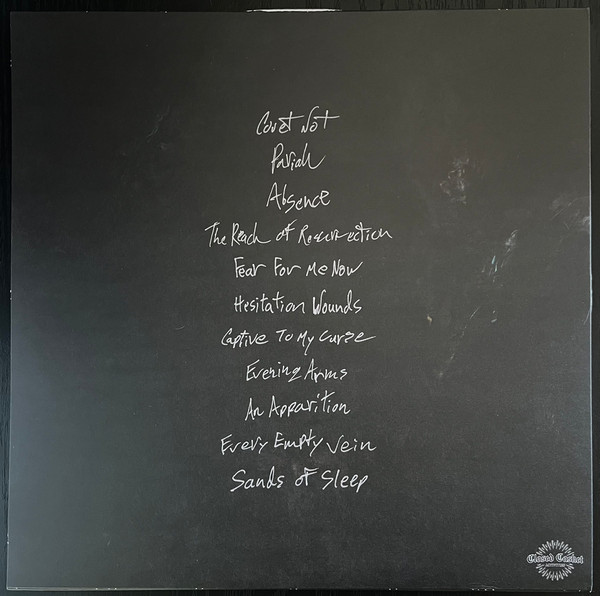 Covet Not
Pariah
Absence
The Reach of Resurrection
Fear For Me Now
Hesitation Wounds
Captive To My Curse
Evening Arms
An Apparition
Every Empty Vein
Sands of Sleep
Closed Casket
ACTIVITIES